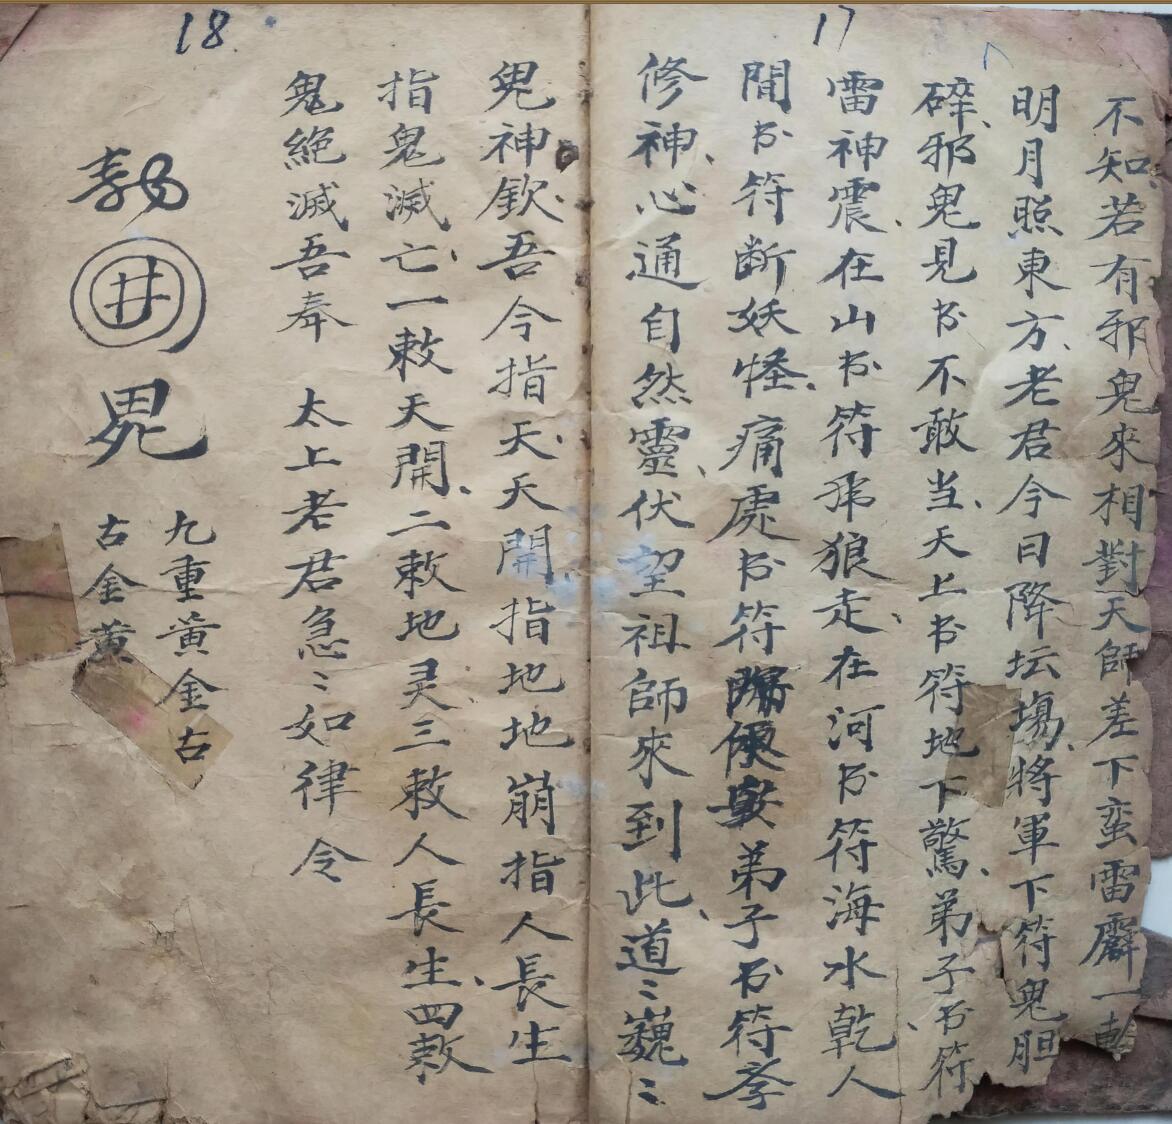 17
不知若有邪鬼來相對天師差下蛮雷霹一
明月照東方老君今日降坛場將軍下符鬼胆
碎邪鬼見书不敢当天上书符地下驚弟子书符
雷神震在山书符虎狼走在河书符海水乾人
間书符断妖怪痛處书符即便安弟子书符
修神心通自然靈伏望祖師來到此道〻巍〻
18
鬼神欽吾今指天天開指地地崩指人長生
指鬼滅亡一敕天開二敕地灵三敕人長生四敕
鬼絕滅吾奉 太上老君急〻如律令
井
九重黃金古
古金黃